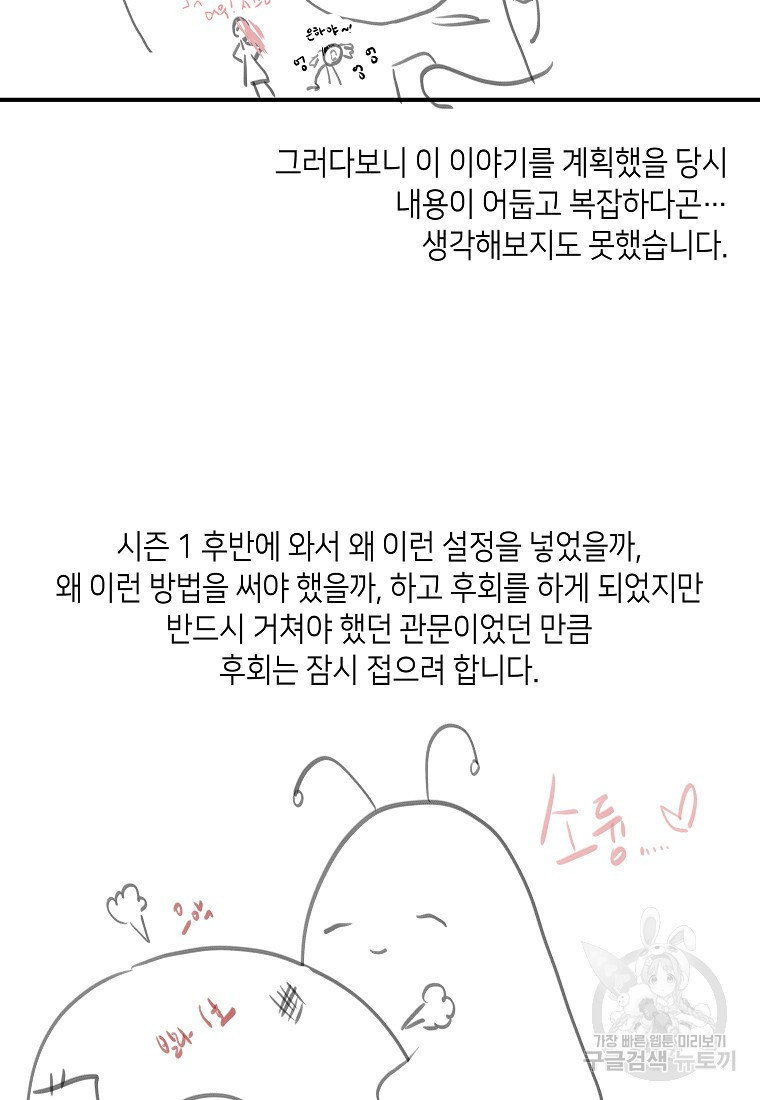 은하야~!
엉
엉
엉
엉
그러다보니 이 이야기를 계획했을 당시
내용이 어둡고 복잡하다곤…
생각해보지도 못했습니다.
시즌 1 후반에 와서 왜 이런 설정을 넣었을까,
왜 이런 방법을 써야 했을까, 하고 후회를 하게 되었지만
반드시 거쳐야 했던 관문이었던 만큼
후회는 잠시 접으려 합니다.
소듕.....♡
가장 빠른 웹툰 미리보기
구글검색 뉴토끼